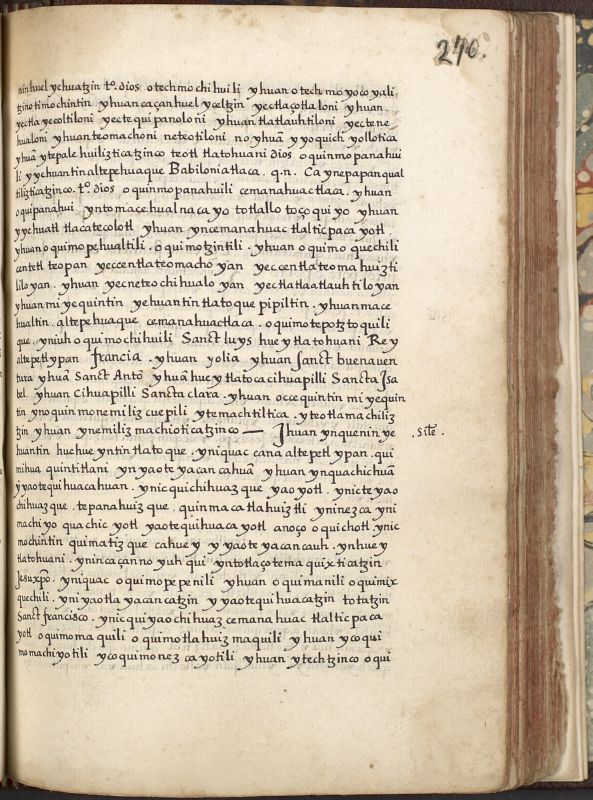 240.
nin huel yehuatzin to. dios otechmochihuili yhuan otechmoyocoyali
tzino timochintin yhuan caçanhuel yceltzin yectlaçotlaloni yhuan.
yectla yecoltiloni yectequipanoloni yhuan tlatlauhtiloni yectene
hualoni yhuan teomachoni neteotiloni no yhuā yyoquich yollotica
yhuā ytepalehuiliztica tzinco teotl tlatohuani dios oquinmopanahui
li yychuantin altepehuaque Babilonia tlaca. q.n. Ca ynepapan qual
tiliztica tzinco. to. dios oquinmopanahuili cemanahuac tlaca. yhuan
oquipanahui yntomacehual nacayo totlallo toçoquiyo yhuan
yyehuatl tlacatecolotl yhuan yncemanahuac tlalticpacayotl
yhuan oquimopehualtili. oquimotzintili. yhuan oquimoquechili
centetl teopan yeccentlateomachoyan yeccentlateomahuizti
liloyan. yhuan yecneteochihualoyan yectlatlatlauhtiloyan
yhuan miyequintin yehuantin tlatoque pipiltin. yhuan mace
hualtin. altepehuaque cemanahuac tlaca. oquimotepotztoquili
que. yniuh oquimochihuili Sanct luys huey tlatohuani Rey
altepetl ypan francia. yhuan yolia yhuan sanct buenaven
tura yhuā Sanct Anto yhuā huey tlatocacihuapilli Sancta Isa
bel. yhuan Cihuapilli Sancta clara. yhuan occequintin miyequin
tin ynoquinmonemilizcuepili ytemachtiltica. yteotlamachiliz
tzin yhuan ynemilizmachioticatzinco — Jhuan ynquenin ye
.Site.
huantin huehueyntin tlatoque. yniquac cana altepetl ypan. qui
mihua quintitlani ynyaoteyacancahuā yhuan ynquachichuā
yyaotequihuacahuan. ynic quichihuazque yaoyotl. ynic teyao
chihuazque. tepanahuizque. quinmaca tlahuiztli yninezca yni
machiyo quachicyotl yaotequihuacayotl anoço oquichotl. ynic
mochintin quimatizque cahuey yyaoteyacancauh. ynhuey
tlatohuani. ynin caçanno yuhqui yntotlaçotemaquixticatzin
Jesuxpo. yniquac oquimopepenili yhuan oquimanili oquimix
quechili. yni yaotlayacancatzin yyaotequihuacatzin totatzin
Sanct francisco. ynic quiyaochihuaz cemanahuac tlalticpaca
yotl oquimomaquili oquimotlahuizmaquili yhuan ycoqui
momachiyotili ycoquimonezcayotili yhuan ytechtzinco oqui